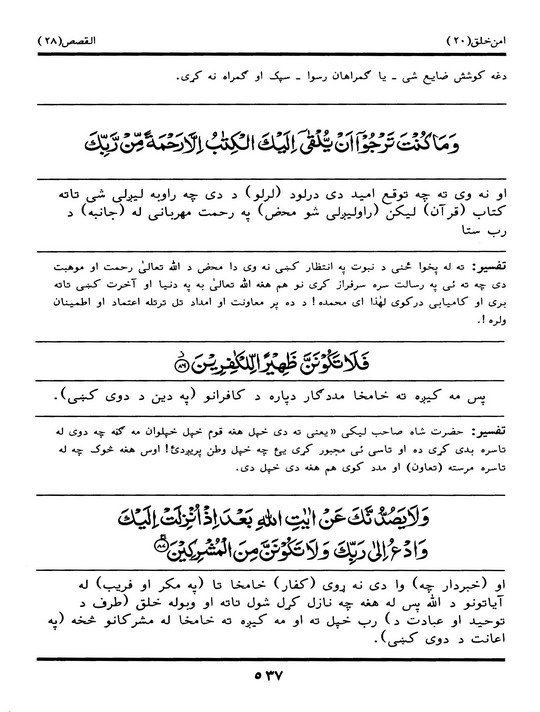 امن خلق (٢٠) القصص (٢٨)
دغه کوشش ضایع شی ـ یا گمراهان رسوا ـ سپک او گمراه نه کړی.
وَمَا كُنْتَ تَرْجُوْۤا اَنْ يُّلْقٰۤى اِلَيْكَ الْكِتٰبُ اِلَّا رَحْمَةً مِّنْ رَّبِّكَ
او نه وی ته چه توقع امید دی درلود (لرلو) د دی چه راوبه لیږلی شی تاته
کتاب (قرآن) لیکن (راولیږلی شو محض) په رحمت مهربانی له (جانبه) د
رب ستا
تفسیر: ته له پخوا څنی د نبوت په انتظار کښی نه وی دا محض د الله تعالیٰ رحمت او موهبت
دی چه ته ئی په رسالت سره سرفراز کړی نو هم هغه الله تعالیٰ به په دنیا او آخرت کښی تاته
بری او کامیابی درکوی لهٰذا ای محمده! د ده پر معاونت او امداد تل ترتله اعتماد او اطمینان
ولره !.
فَلَا تَكُوْنَنَّ ظَهِيْرًا لِّلْكٰفِرِيْنَ ﴿٨٦﴾
پس مه کیږه ته خامخا مددگار دپاره د کافرانو (په دین د دوی کښی).
تفسیر: حضرت شاه صاحب لیکی «یعنی ته دی خپل هغه قوم خپل خپلوان مه گڼه چه دوی له
تاسره بدی کړی ده او تاسی ئی مجبور کړی یئ چه خپل وطن پریږدئ! اوس هغه څوک چه له
تاسره مرسته (تعاون) او مدد کوی هم هغه دی خپل دی.
وَلَا يَصُدُّنَّكَ عَنْ اٰيٰتِ اللّٰهِ بَعْدَ اِذْ اُنْزِلَتْ اِلَيْكَ
وَادْعُ اِلٰى رَبِّكَ وَلَا تَكُوْنَنَّ مِنَ الْمُشْرِكِيْنَ ﴿٨٧﴾
او (خبردار چه) وا دی نه ړوی (کفار) خامخا تا (په مکر او فریب) له
آیاتونو د الله پس له هغه چه نازل کړل شول تاته او وبوله خلق (طرف د
توحید او عبادت د) رب خپل ته او مه کیږه ته خامخا له مشرکانو څخه (په
اعانت د دوی کښی).
٥٣٧